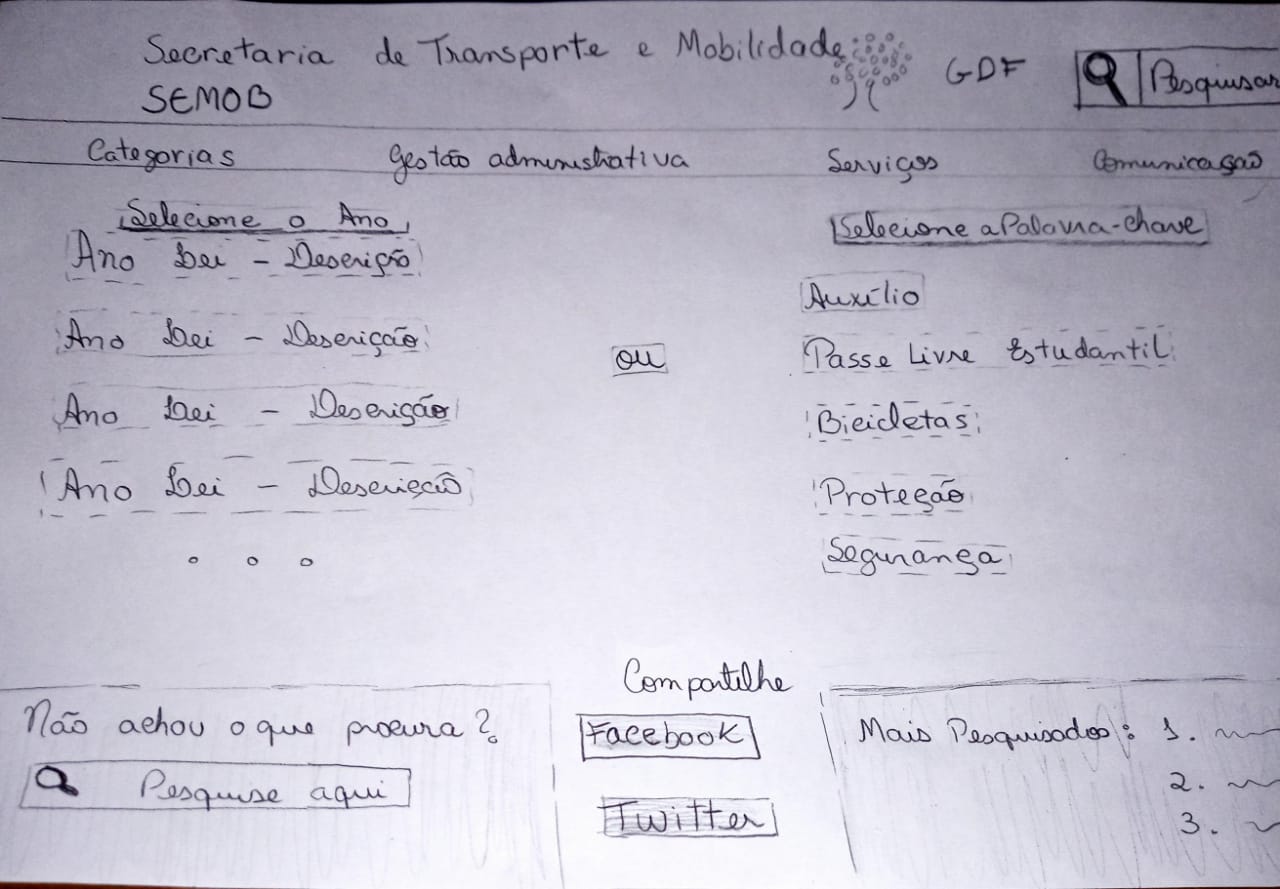 Secretaria de Transporte e Mobilidade
SEMOB
GDF
Pesquisar
Categorias
Gestão administrativa
Serviços
Comunicação
Selecione o Ano
Ano Lei - Descrição
Ano Lei - Descrição
Ano Lei - Descrição
Ano Lei - Descrição
ou
Selecione a Palavra-chave
Auxílio
Passe Livre Estudantil
Bicicletas
Proteção
Segurança
Não achou o que procura?
Pesquise aqui
Compartilhe
Facebook
Twitter
Mais Pesquisados: 1.
2.
3.